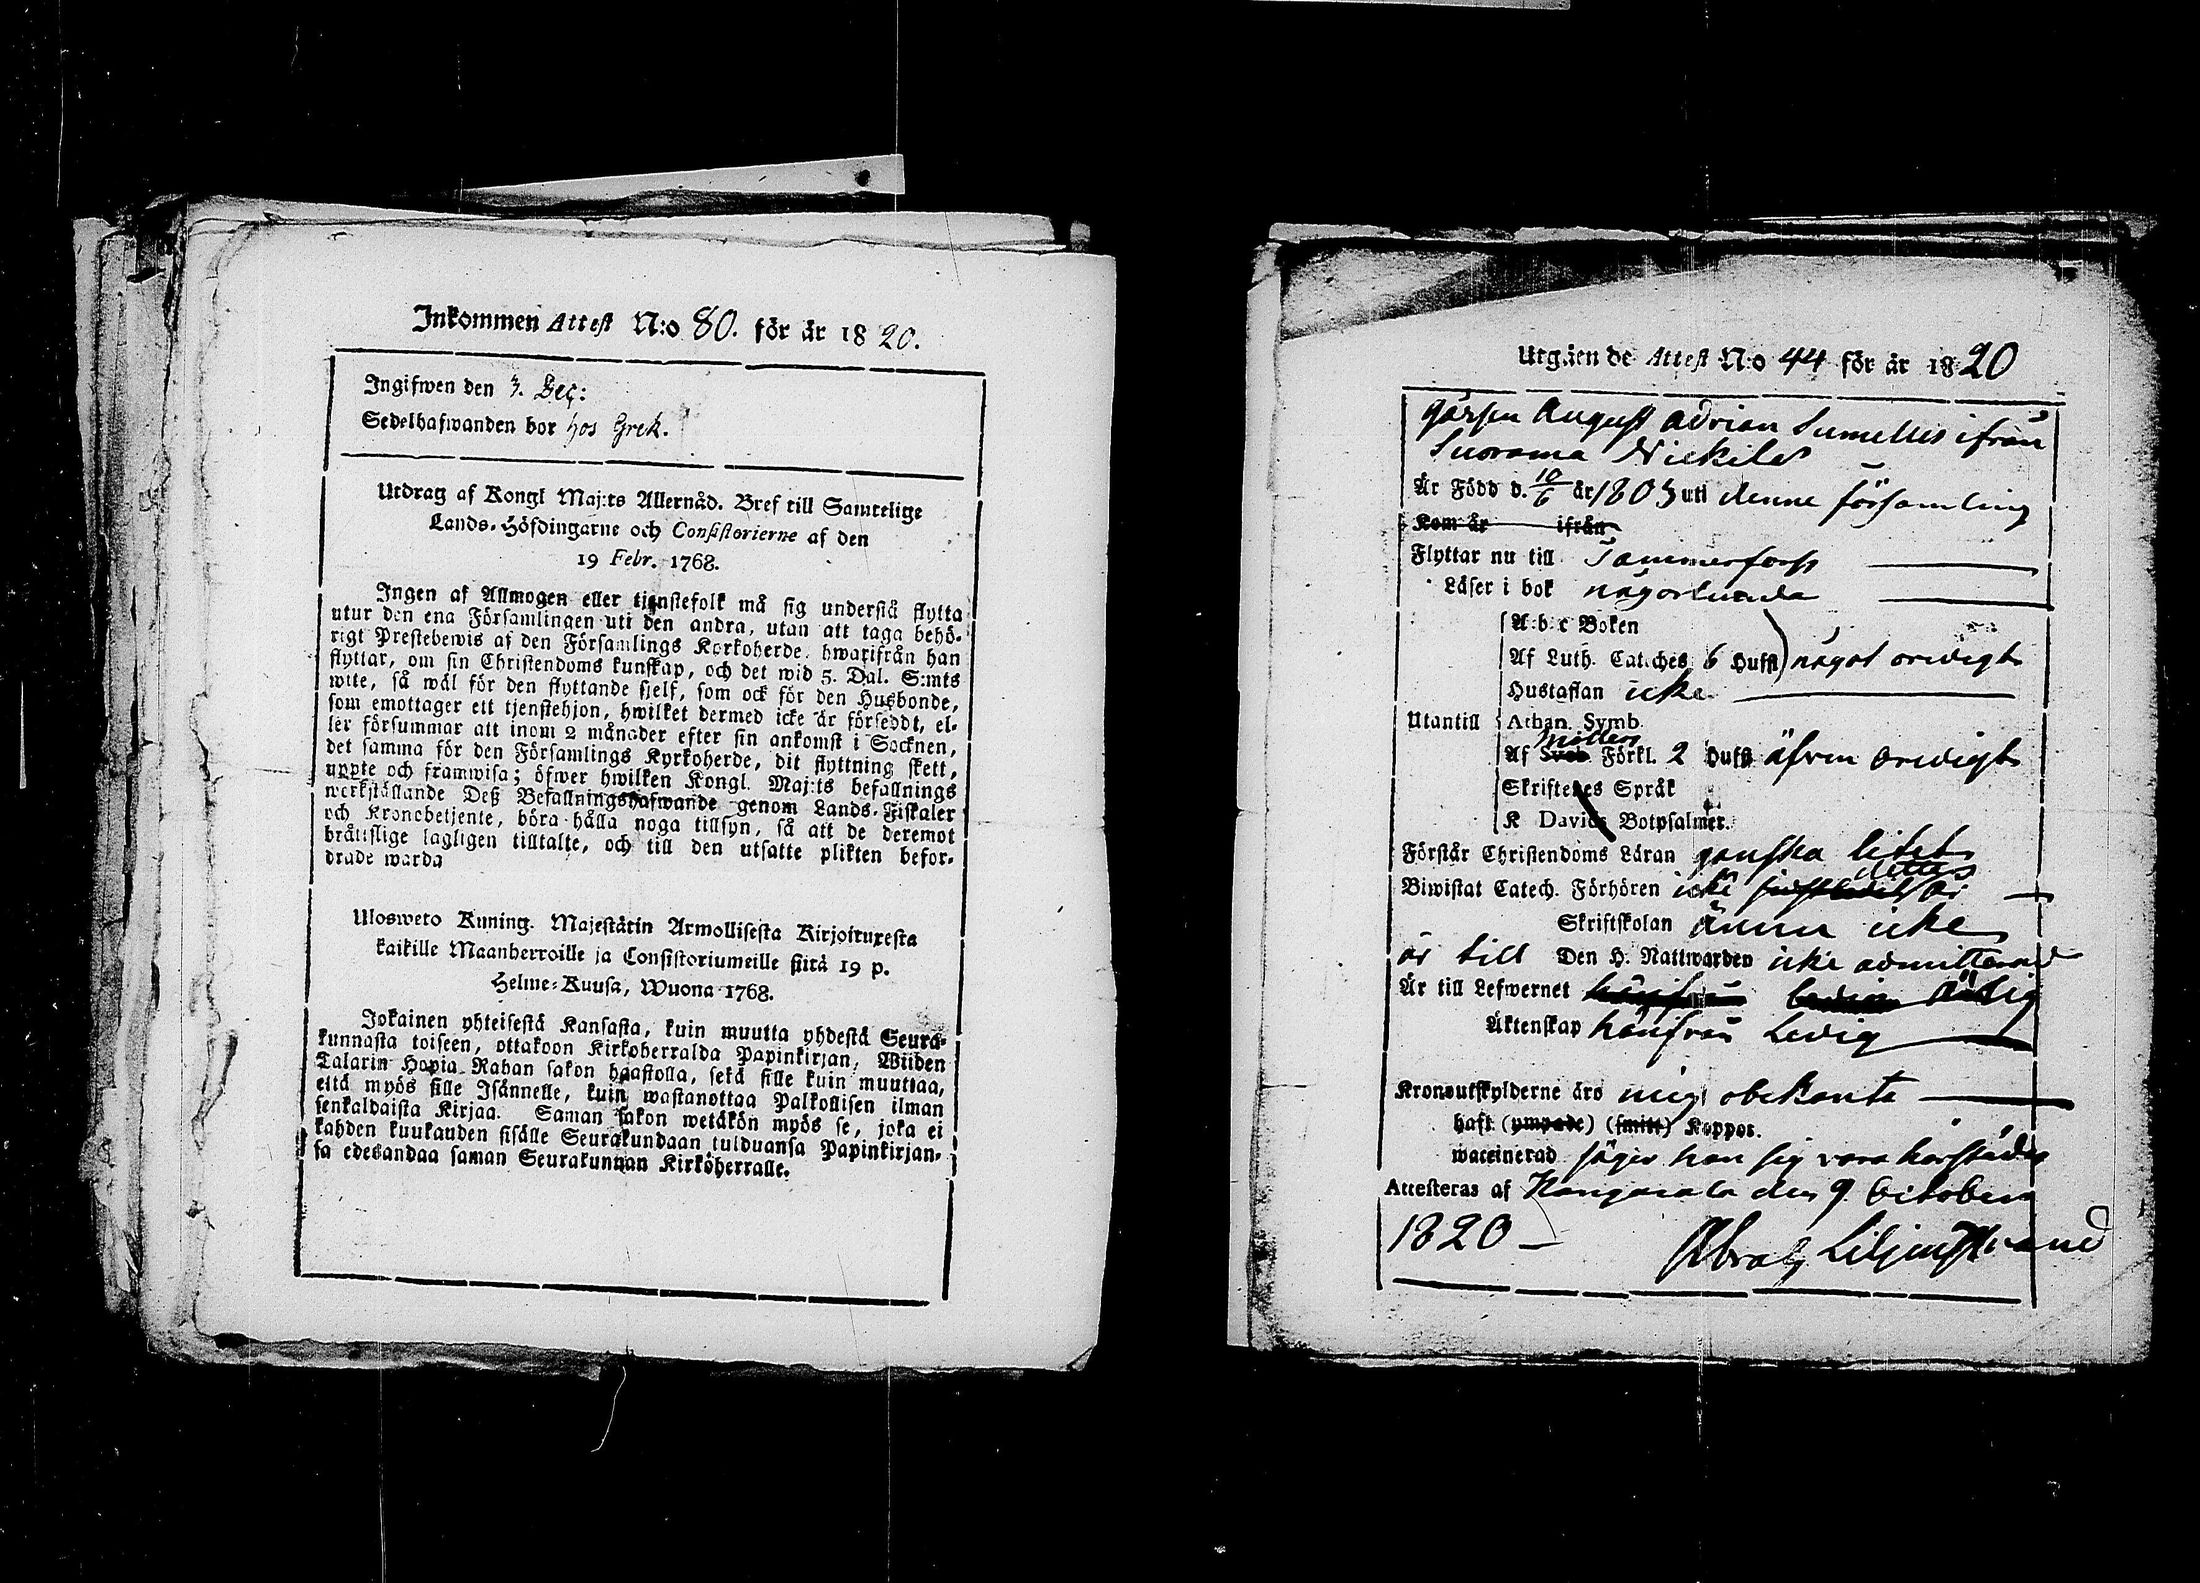 Inkommen Attest N:o 80. för år 1820.
Ingifwen den 3. Dec:
Sedelhafwanden bor hos Grek.
Utdrag af Kongl Maj:ts Allernåd. Bref till Samtelige
Lands-Höfdingarne och Consistorierne af den
19 Febr. 1768.
Ingen af Allmogen eller tjenstefolk må sig understå flytta
utur den ena Församlingen uti den andra, utan att taga behö-
rigt Prestebewis af den Församlings Kyrkoherde, hwarifrån han
flyttar, om sin Christendoms kunskap, och det wid 5. Dal. S:mts
wite, så wäl för den flyttande sjelf, som ock för den Husbonde,
som emottager ett tjenstehjon, hwilket dermed icke är försedt, el-
ler försummar att inom 2 månader efter sin ankomst i Socknen,
det samma för den Församlings Kyrkoherde, dit flyttning skett,
uppte och framwisa; öfwer hwilken Kongl. Maj:ts befallnings
werkställande Deß Befallningshafwande genom Lands-Fiskaler
och Kronobetjente, böra hålla noga tillsyn, så att de deremot
bråttslige lagligen tilltalte, och till den utsatte plikten befor-
drade warda
Ulosweto Kuning. Majestätin Armollisesta Kirjoituxesta
kaikille Maanherroille ja Consistoriumeille siitä 19 p.
Helme-Kuusa, Wuona 1768.
Jokainen yhteisestä Kansasta, kuin muutta yhdestä Seura-
kunnasta toiseen, ottakoon Kirkoherralda Papinkirjan, Wiiden
Talarin Hopia Rahan sakon haastolla, sekä sille kuin muuttaa,
että myös sille Isännelle, kuin wastanottaa Palkollisen ilman
senkaldaista Kirjaa. Saman sakon wetäkön myös se, joka ei
kahden kuukauden sisälle Seurakundaan tulduansa Papinkirjan-
sa edesandaa saman Seurakunnan Kirköherralle.
Utgåen de Attest No 44 för år 1820
gåssen August Adrian Sumelius ifrån
Suorama Nickilä
Är Född d. 10/6 år 1803 uti denne församling
Kom år ifrån
Flyttar nu till Tammerforss
Läser i bok någorlunda
A:b:c Boken
Af Luth. Catches 6 Hufst något oredigt
Hustaflan icke
Utantill Athan. Symb.
Möllers
Af Förkl. 2 Hufst äfven oredigt
Skriftenes Språk
K Davids Botpsalmer.
Förstår Christendoms Läran ganska litet
Biwistat Catech. Förhören icke dettas
Skriftskolan ännu icke
är till Den H. Nattwarden icke admitterad
Är till Lefwernet
Äktenskap hänfrån Ledig
Kronoutskylderne äro mig obekante
haft (ympade) (smitt) Koppor.
waccinerad säger han sig vara härstädes
Attesteras af Kangasala den 9 October
1820 Abrah Liljenstrand